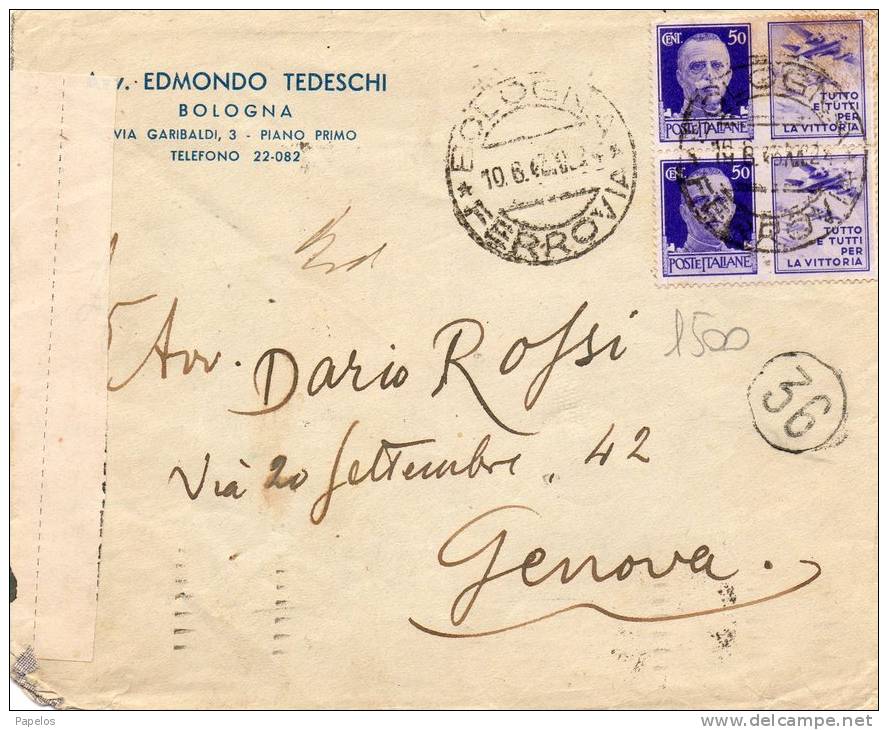 Avv. EDMONDO TEDESCHI
BOLOGNA
VIA GARIBALDI, 3 - PIANO PRIMO
TELEFONO 22-082
BOLOGNA
FERROVIA
CENT. 50
POSTE ITALIANE
TUTTO
E TUTTI
PER
LA VITTORIA
CENT. 50
POSTE ITALIANE
TUTTO
E TUTTI
PER
LA VITTORIA
1500
Avv. Dario Rossi
36
Via 20 Settembre, 42
Genova.
Papelos
www.delcampe.net